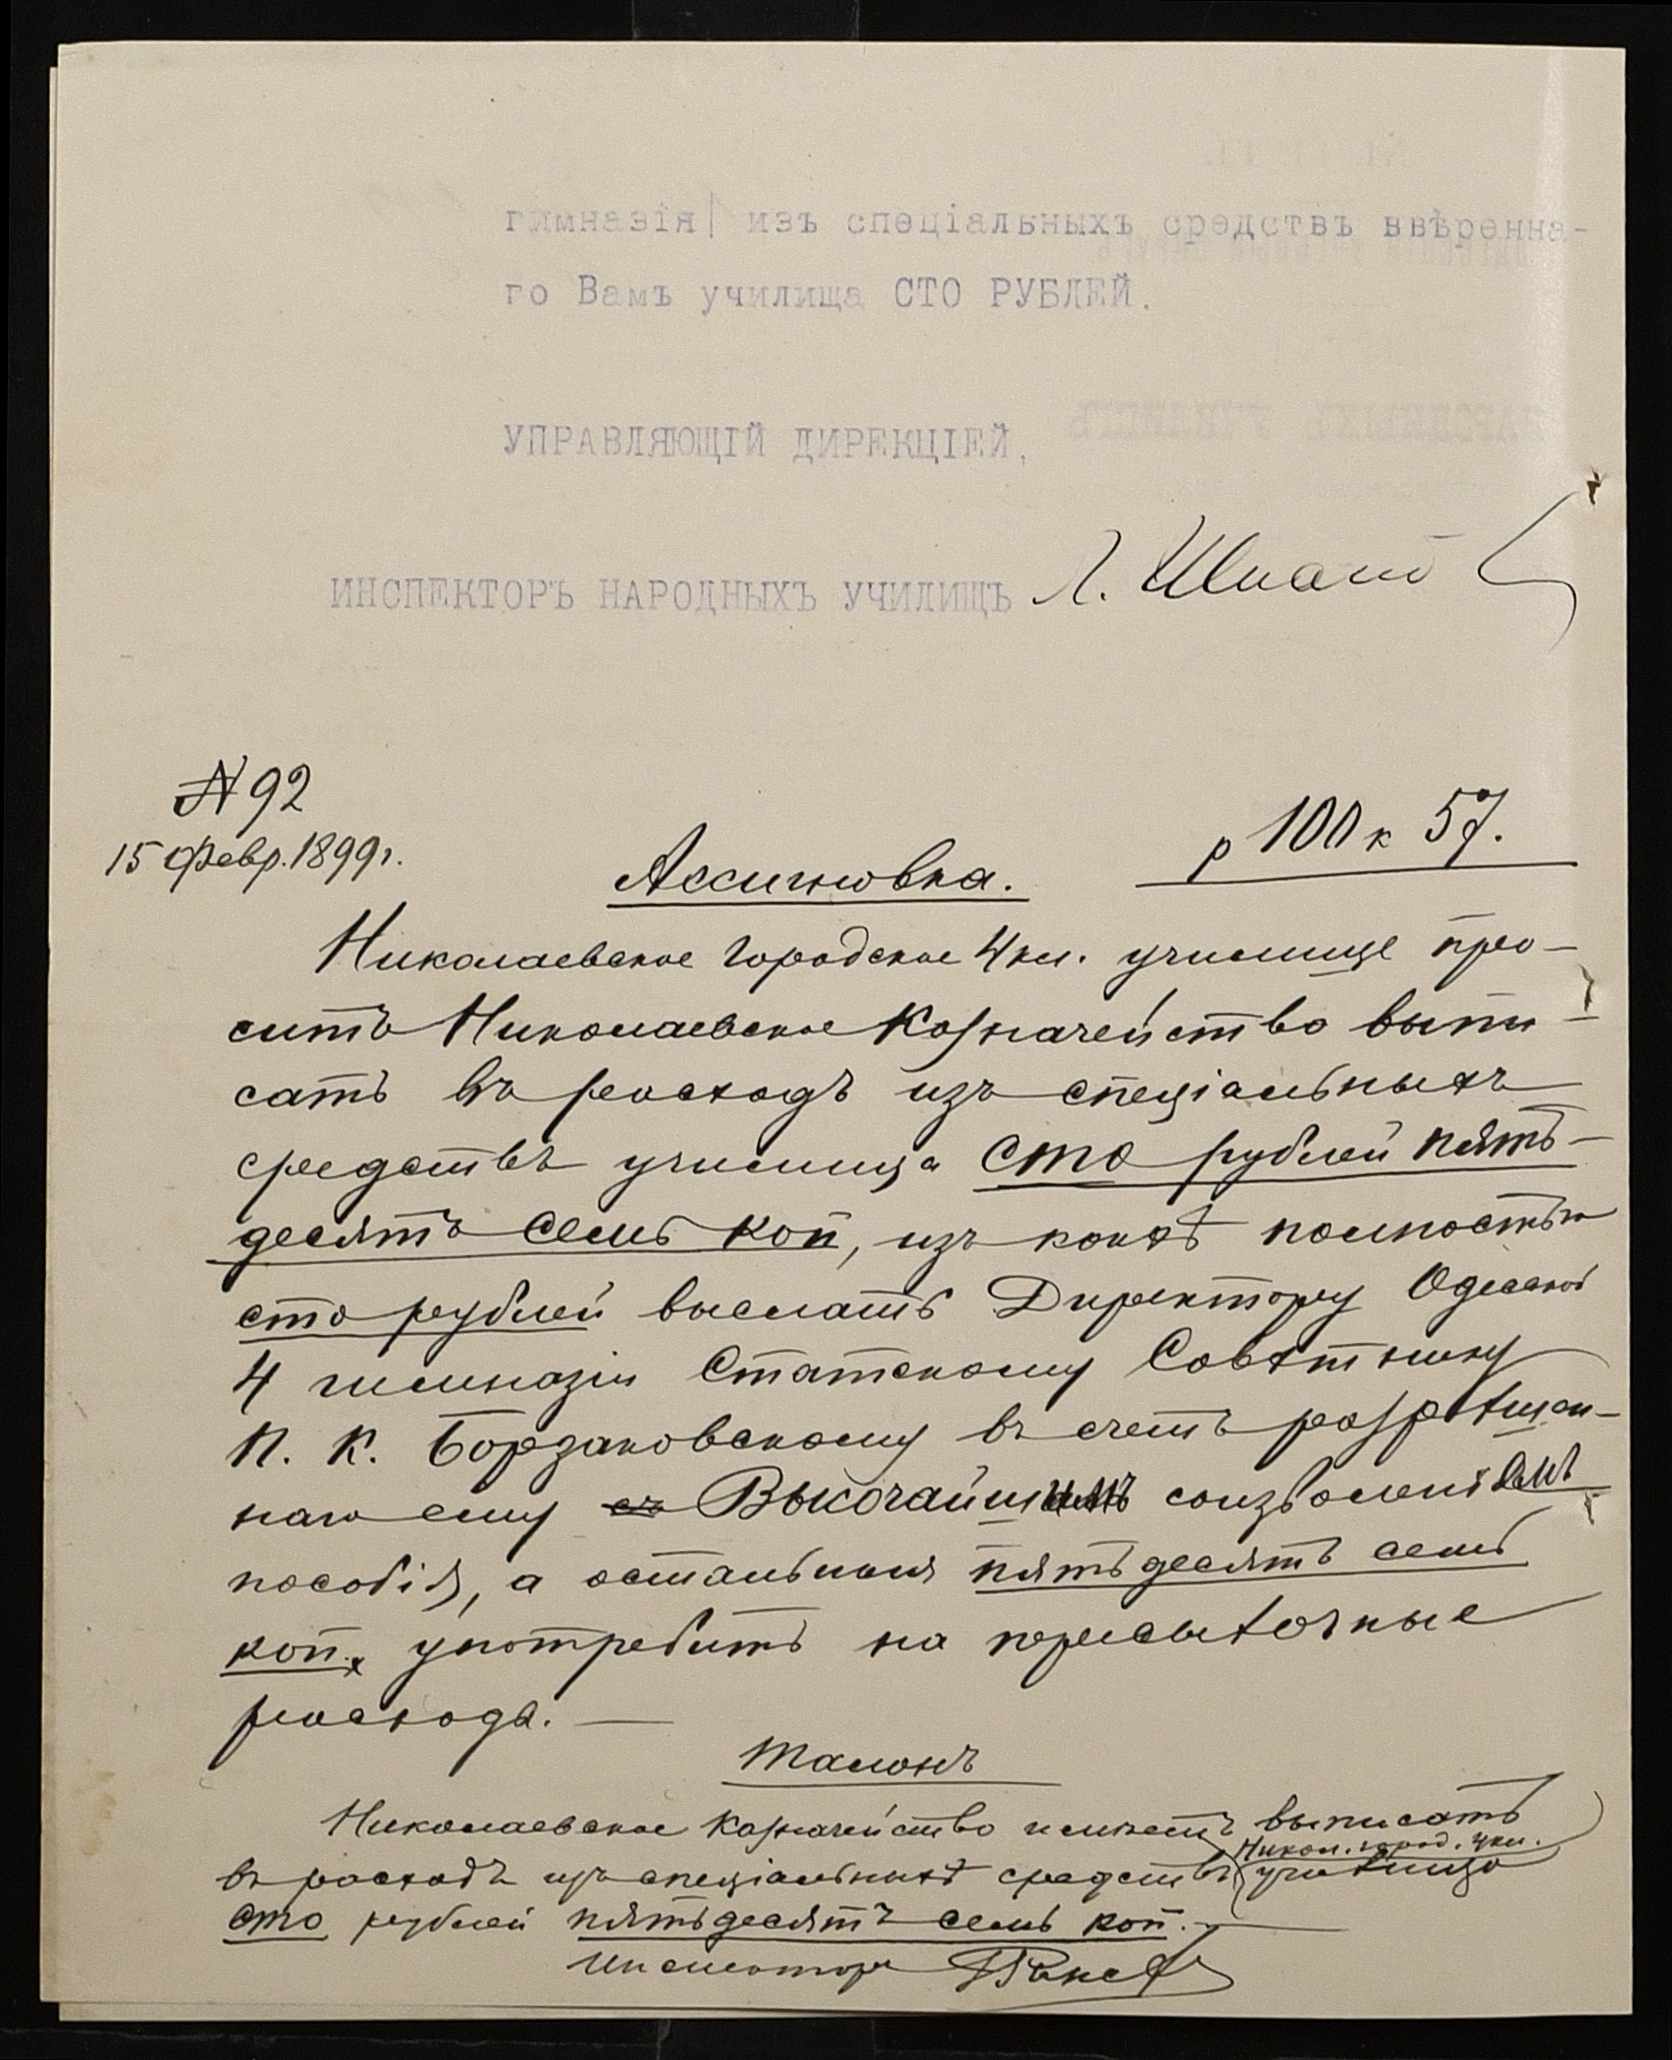 гимназія| изъ спеціальныхъ средствъ ввѣренна-
го Вамъ училища СТО РУБЛЕЙ.
УПРАВЛЯЮЩІЙ ДИРЕКЦІЕЙ,
ИНСПЕКТОРЪ НАРОДНЫХЪ УЧИЛИЩЪ
№ 92
15 Февр. 1899 г.
р 100 к 57.
Ассигновка.
Николаевское городское 4 кл. училище про-
ситъ Николаевское Казначейство выпи-
сать въ расходъ изъ спеціальныхъ
средствъ училища сто рублей пять-
десятъ семь коп, изъ коихъ полностью
сто рублей выслать Директору Одесской
4 гимназіи Статскому Совѣтнику
П. К. Бордаковскому въ счетъ разрѣшен-
наго ему съ Высочайшимъ соизволеніемъ
пособія, а остальныя пятьдесятъ семь
коп. употребить на пересылочные
расходы. —
Талонъ
Николаевское Казначейство имѣетъ выписать
въ расходъ изъ спеціальныхъ средствъ Никол. город. 4 кл. училища
сто рублей пятьдесятъ семь коп. —
Инспекторъ